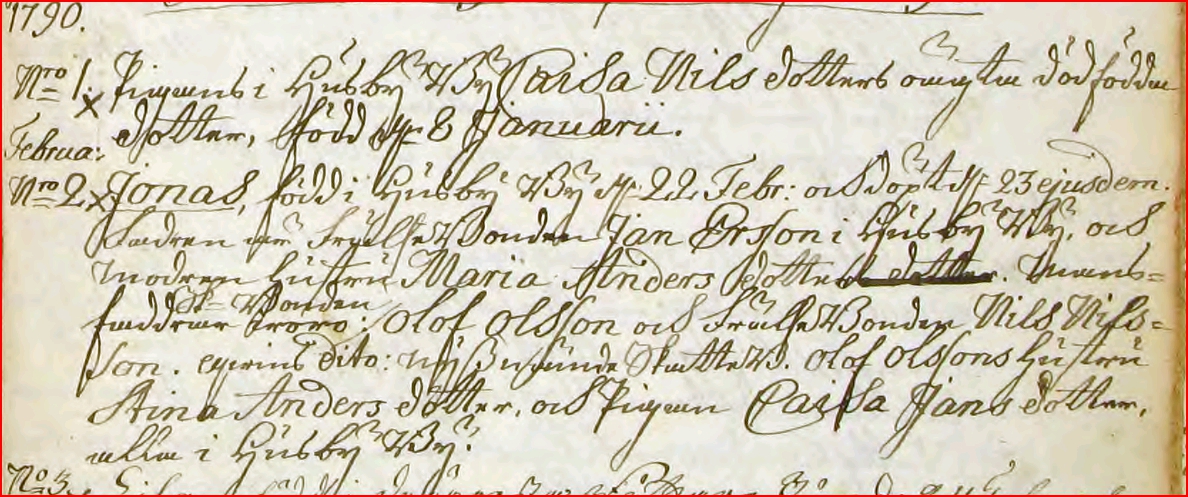 1790.
Nro 1. x Pigans i Husby By Caisa Nils dotters oägta dödfödda
dotter, född d. 8 Januarii.
Februa:
Nro 2. x Jonas, född i Husby By d. 22 Febr: och döpt d. 23 ejusdem.
Fadren är FrälseBonden Jan Ersson i Husby By, och
modren hustru Maria Anders dotter. Mans-
St. Bonden
faddrar voro: Olof Olsson och FrälseBonden Nils Nils-
son. qvins dito: nyssnämde SkatteB. Olof Olssons hustru
Stina Anders dotter, och Pigan Caisa Jans dotter,
alla i Husby By.
No 3.